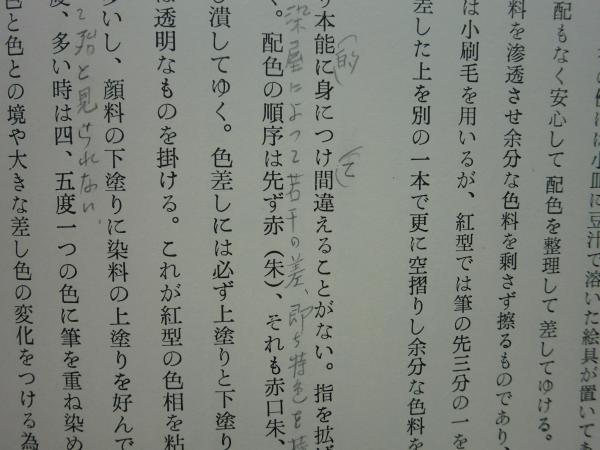 小皿に豆汁で溶いた絵具が置いて
配もなく安心して配色を整理して差してゆける。
料を滲透させ余分な色料を剰さず擦るものであり、
は小刷毛を用いるが、紅型では筆の先三分の一を
差した上を別の一本で更に空摺りし余分な色料を
(的
(て
り本能に身につけ間違えることがない。指を拡げ
染屋によって若干の差、即ち特色を持
く。配色の順序は先ず赤(朱)、それも赤口朱、
し潰してゆく。色差しには必ず上塗りと下塗り
は透明なものを掛ける。これが紅型の色相を粘
多いし、顔料の下塗りに染料の上塗りを好んで
と見られない
度、多い時は四、五度一つの色に筆を重ね染め
色と色との境や大きな差し色の変化をつける為